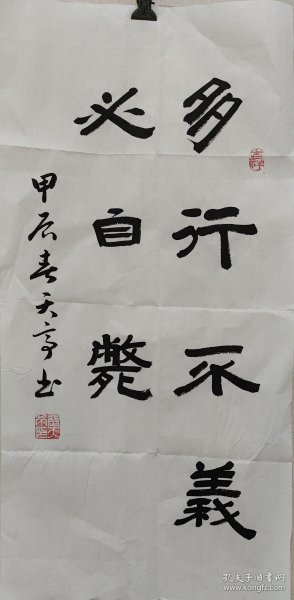 多行不義
必自斃
甲辰春天亭书
孔夫子旧书网